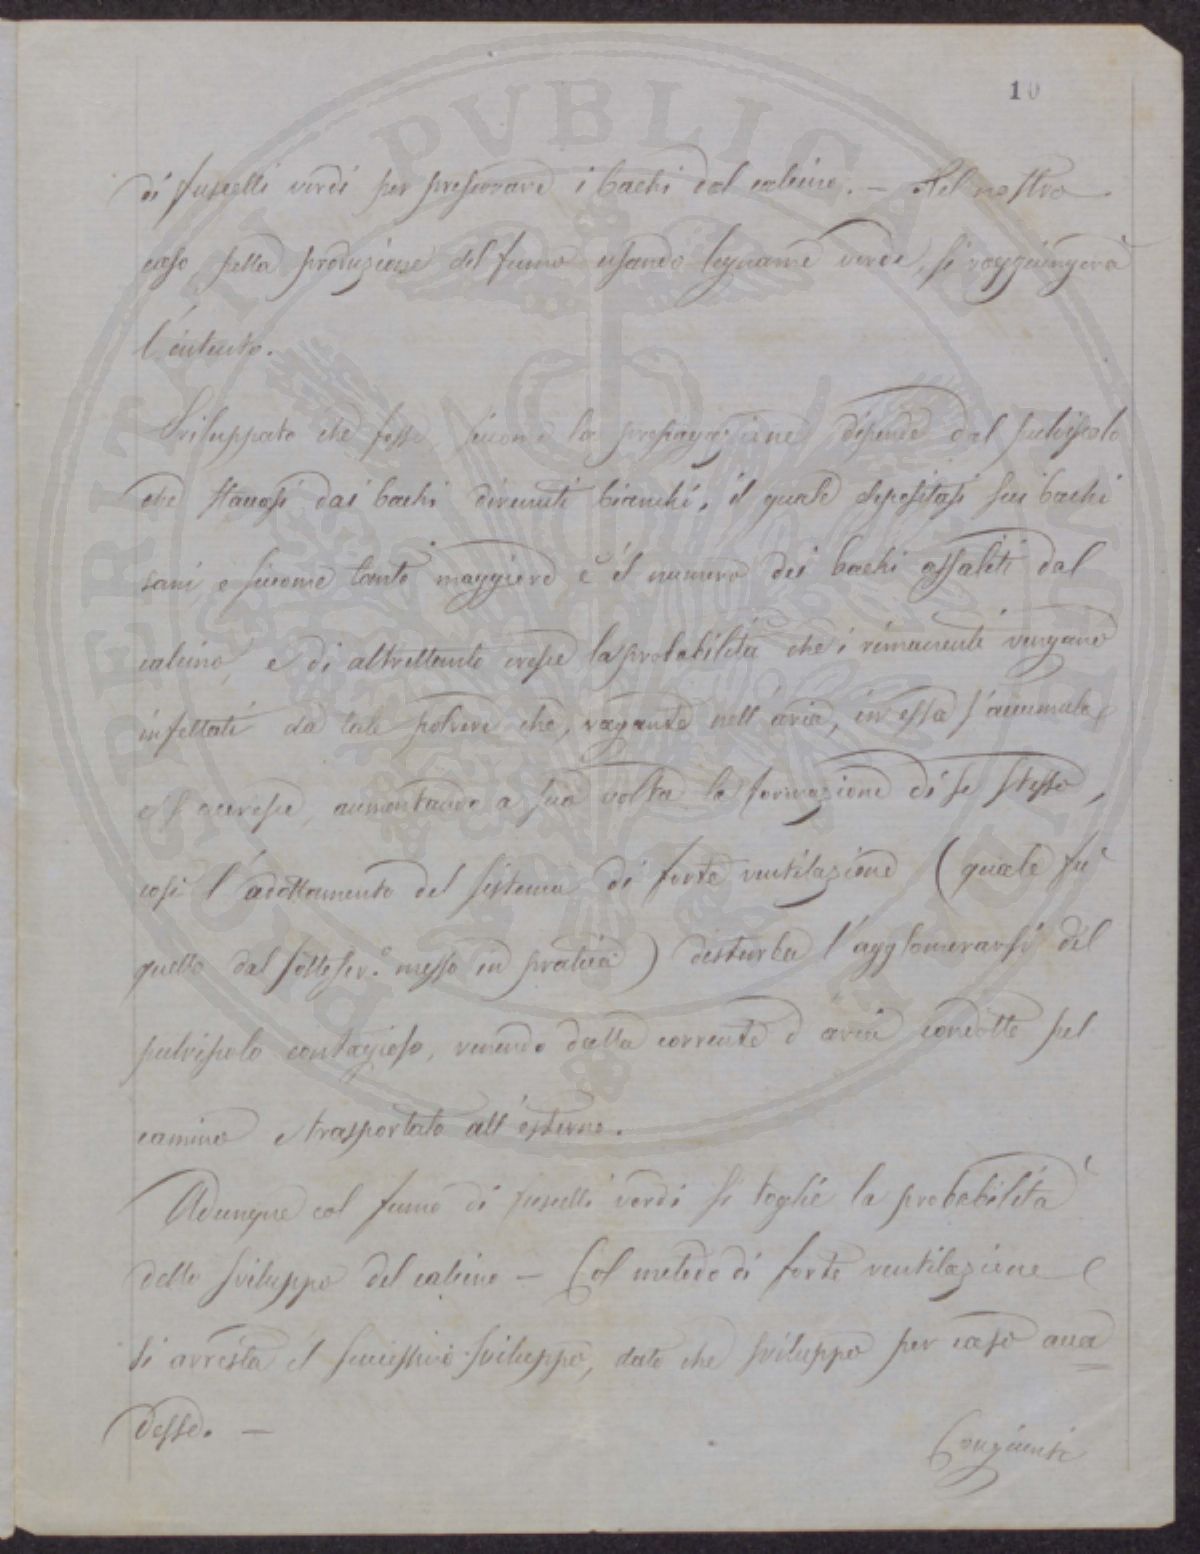 10
di fuscelli verdi per preservare i bachi dal calcino. — Nel nostro
caso pella produzione del fumo usando legname verde, si raggiungerà
l'intento.
Sviluppato che fosse, siccome la propagazione dipende dal pulviscolo
che staccasi dai bachi divenuti bianchi, il quale depositasi sui bachi
sani, e siccome tanto maggiore è il numero dei bachi assaliti dal
calcino, e di altrettanto cresce la probabilità che i rimanenti vengano
infettati da tale polvere che, vagante nell'aria, in essa s'accumula e
s'accresce, aumentando a sua volta la formazione di se stesso,
così l'adottamento del sistema di forte ventilazione (quale fu
quello dal sottoscr.o messo in pratica) disturba l'agglomerarsi del
pulviscolo contagioso, venendo dalla corrente d'aria condotto pel
camino e trasportato all'esterno.
Adunque col fumo di fuscelli verdi si toglie la probabilità
dello sviluppo del calcino — Col metodo di forte ventilazione
si arresta il successivo sviluppo, dato che sviluppo per caso acca
desse. —
Congiunti
PUBLICA